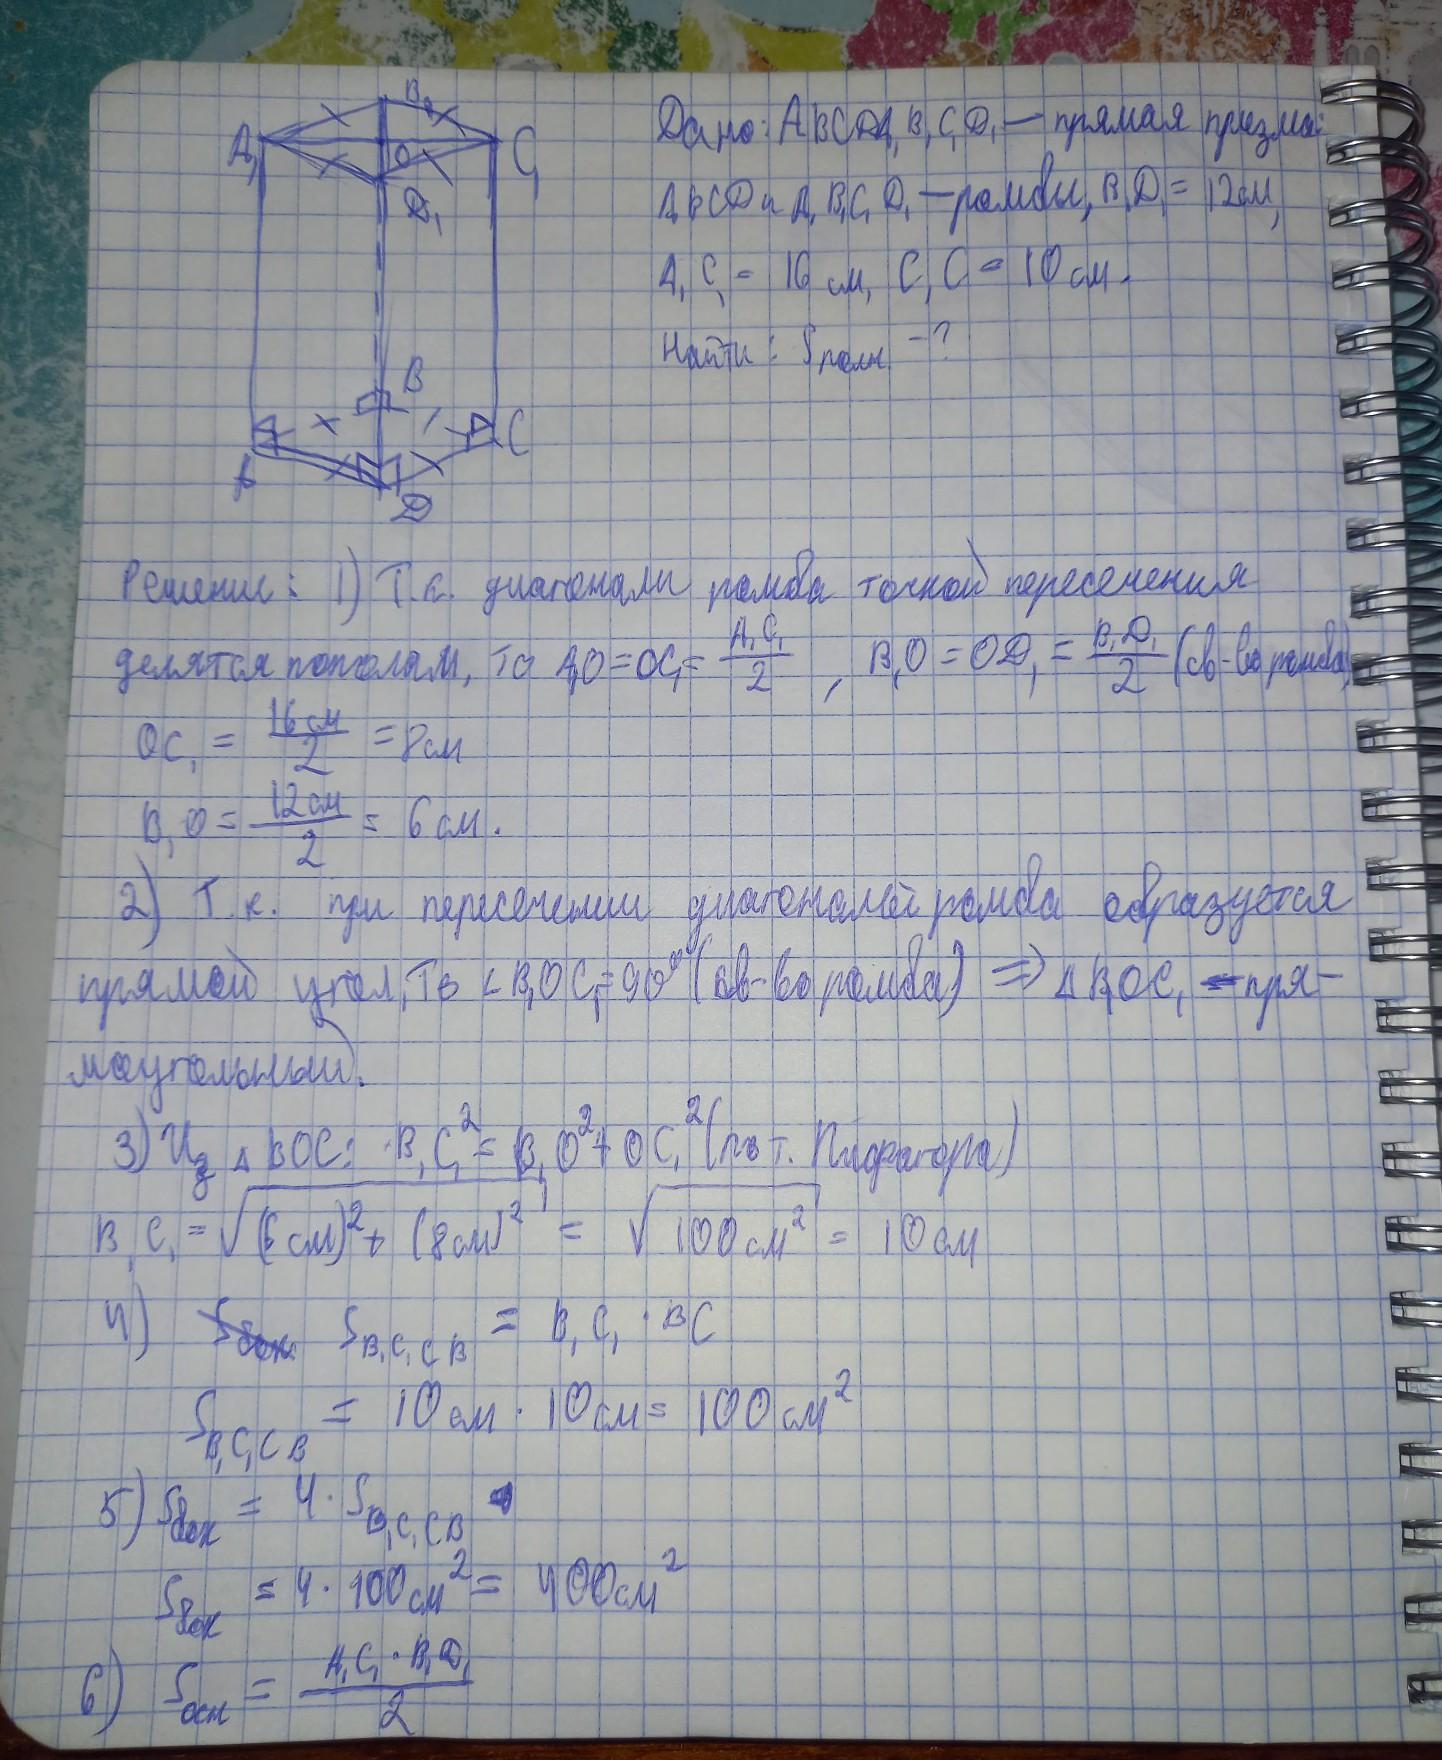 B₁
A₁
O
C₁
D₁
B
A
C
D
Дано: ABCDA₁B₁C₁D₁ — прямая призма;
ABCD и A₁B₁C₁D₁ — ромбы, B₁D₁ = 12 см,
A₁C₁ = 16 см, C₁C = 10 см.
Найти: Sполн - ?
Решение: 1) Т.к. диагонали ромба точкой пересечения
делятся пополам, то A₁O = OC₁ = A₁C₁/2, B₁O = OD₁ = B₁D₁/2 (св-во ромба)
OC₁ = 16 см/2 = 8 см
B₁O = 12 см/2 = 6 см.
2) Т.к. при пересечении диагоналей ромба образуется
прямой угол, то ∠B₁OC₁ = 90° (св-во ромба) ⇒ ΔB₁OC₁ — пря-
моугольный.
3) Из ΔBOC: B₁C₁² = B₁O² + OC₁² (по т. Пифагора)
B₁C₁ = √((6 см)² + (8 см)²) = √(100 см²) = 10 см
4) S B₁C₁CB = B₁C₁ · BC
S B₁C₁CB = 10 см · 10 см = 100 см²
5) Sбок = 4 · S B₁C₁CB
Sбок = 4 · 100 см² = 400 см²
6) Sосн = A₁C₁ · B₁D₁/2